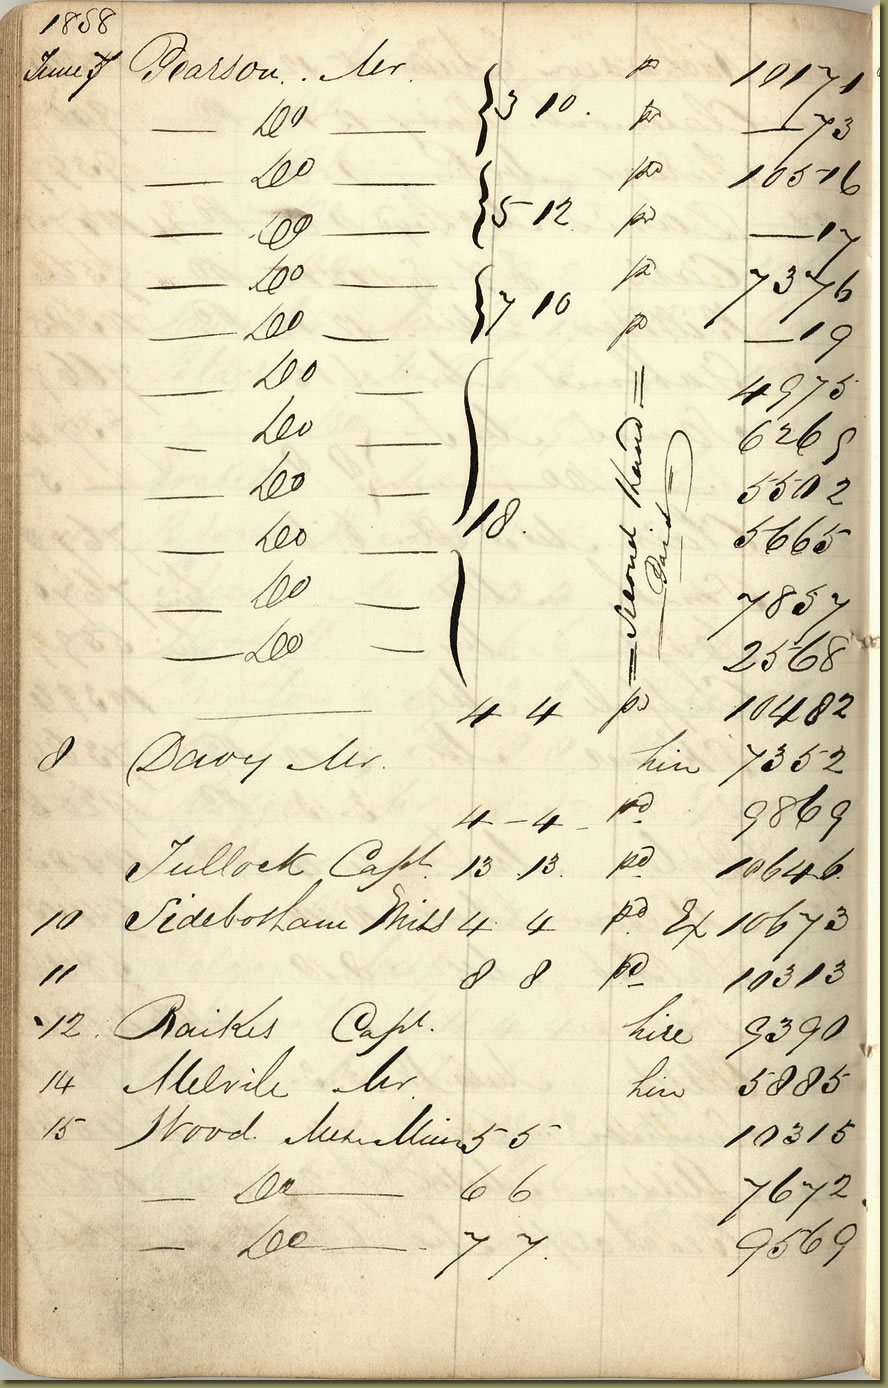 1858
June 7 Pearson Mr. { 3 10. pd 10171
— Do — pd — 73
— Do — { 5 12 pd 10516
— Do — pd — 17
— Do — { 7 10 pd 7376
— Do — pd — 19
— Do — 4975
— Do — 6269
— Do — 5502
— Do — 18. 5665
— Do — 7857
— Do — 2568
= Second Hand =
— Paid —
— 4 4 pd 10482
8 Davy Mr. hire 7352
4 – 4 – pd 9869
Tullock Capt. 13 13. pd 10646
10 Sidebotham Miss 4 4 pd. Ex 10673
11 8 8 pd 10313
12 Raikes Capt. hire 9390
14 Melvile Mr hire 5885
15 Wood. 5 5 10315
— Do — 6 6 7672
— Do — 7 7. 9569